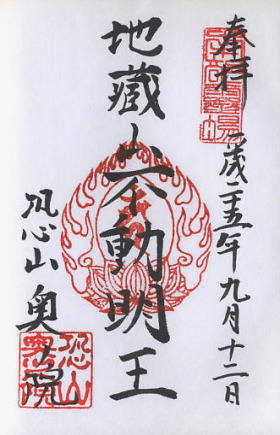 奉拝
平成二十五年九月十二日
地蔵山不動明王
恐山奥之院
恐山
奥院